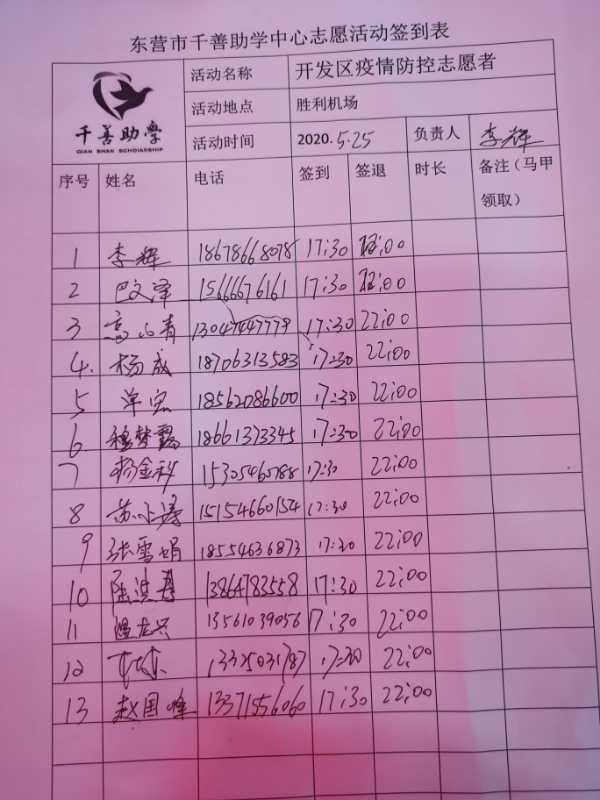 东营市千善助学中心志愿活动签到表
千善助学
QIAN SHAN SCHOLARSHIP
活动名称 开发区疫情防控志愿者
活动地点 胜利机场
活动时间 2020.5.25 负责人 李辉
序号 姓名 电话 签到 签退 时长 备注（马甲领取）
1 李辉 18678668078 17:30 22:00
2 巴文泽 15666676161 17:30 22:00
3 13047447779 17:30 22:00
4. 杨成 18706313583 17:30 22:00
5 单宏 18562086600 17:30 22:00
6. 18661373345 17:30 22:00
7 杨金科 15305460788 17:30 22:00
8 15154660154 17:30 22:00
9 张雪娟 18554636873 17:30 22:00
10 13864783558 17:30 22:00
11 温龙兴 13561039056 17:30 22:00
12 13325031787 17:30 22:00
13 赵国峰 13371556060 17:30 22:00